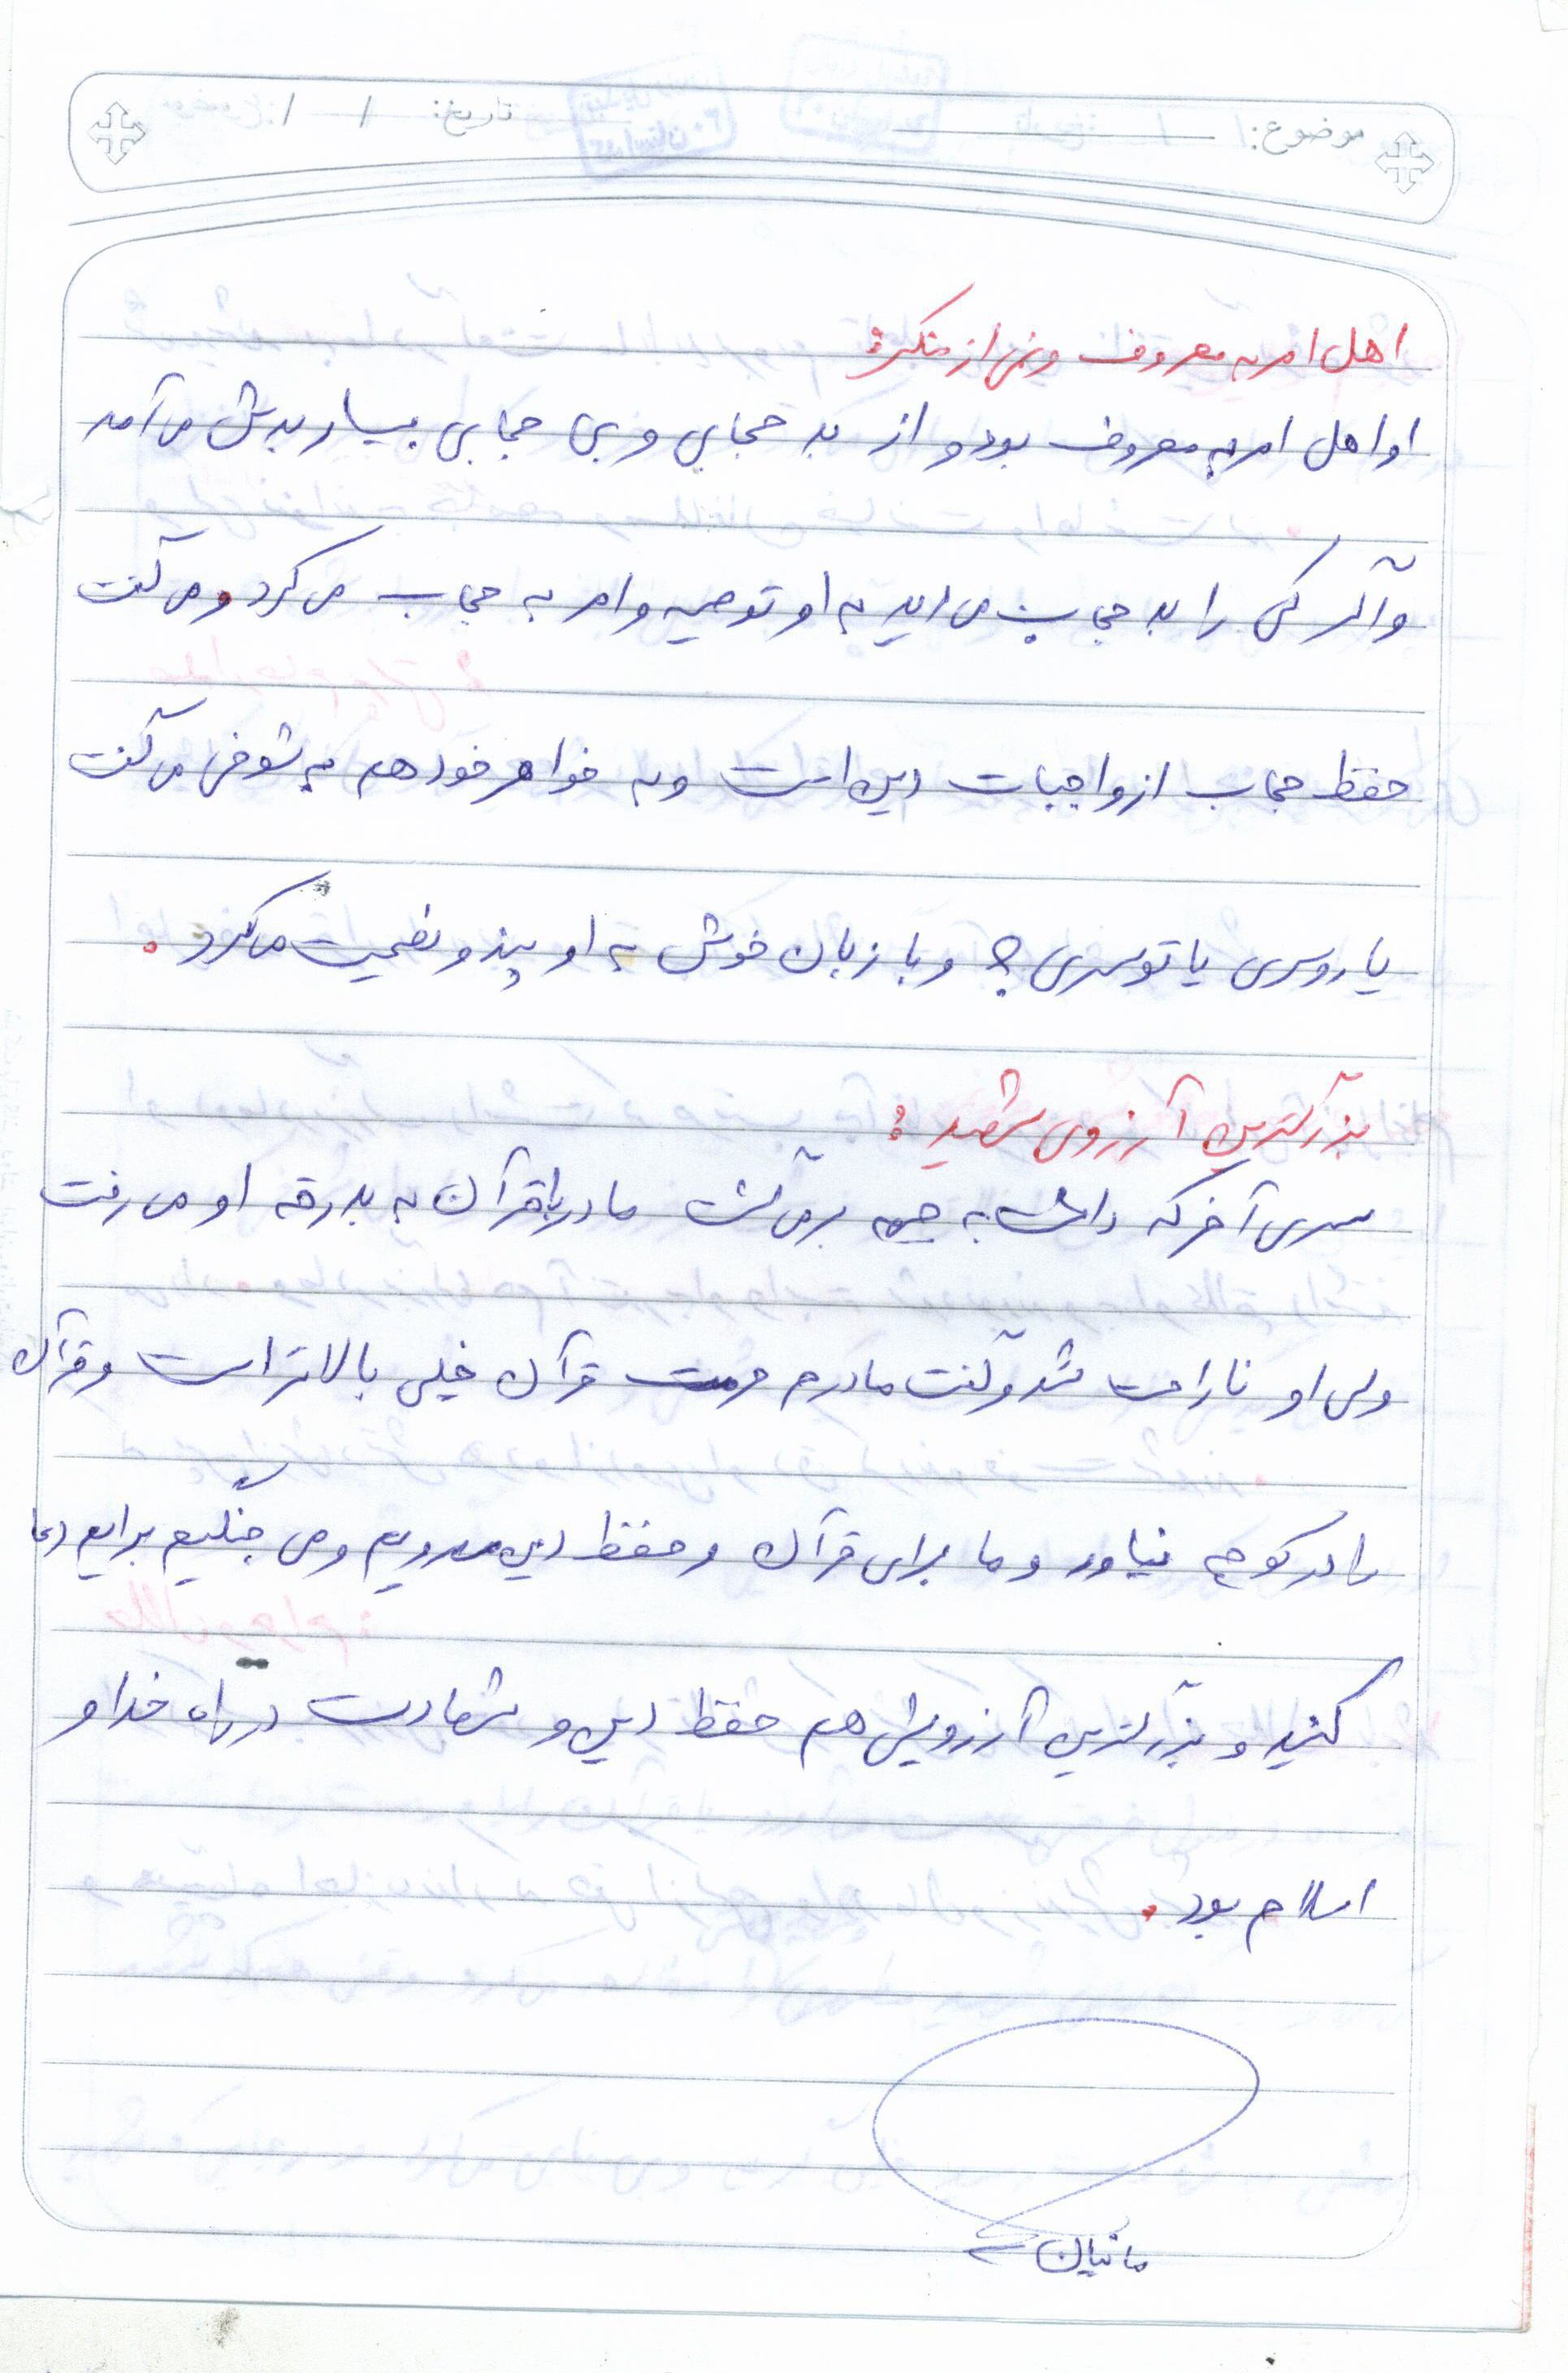 موضوع: تاریخ: / /
اهل امر به معروف و نهی از منکر:
او اهل امر به معروف بود و از بد حجابی و بی حجابی بسیار بدش می آمد
و اگر کسی را بد حجاب می دید به او توصیه و امر به حجاب می کرد و می گفت
حفظ حجاب از واجبات دین است و به خواهر خود هم به شوخی می گفت
یا روسری یا توسری؟ و با زبان خوش به او پند و نصحیت می کرد.
بزرگترین آرزوی شهید:
سری آخر که داشت به جبهه برمی گشت مادر با قرآن به بدرقه او می رفت
ولی او ناراحت شد و گفت مادرم حرمت قرآن خیلی بالاتر است و قرآن
را در کوچه نیاور و ما برای قرآن و حفظ دین میرویم و می جنگیم برایم دعا
کنید و بزرگترین آرزویش هم حفظ دین و شهادت در راه خدا و
اسلام بود.
مانیان